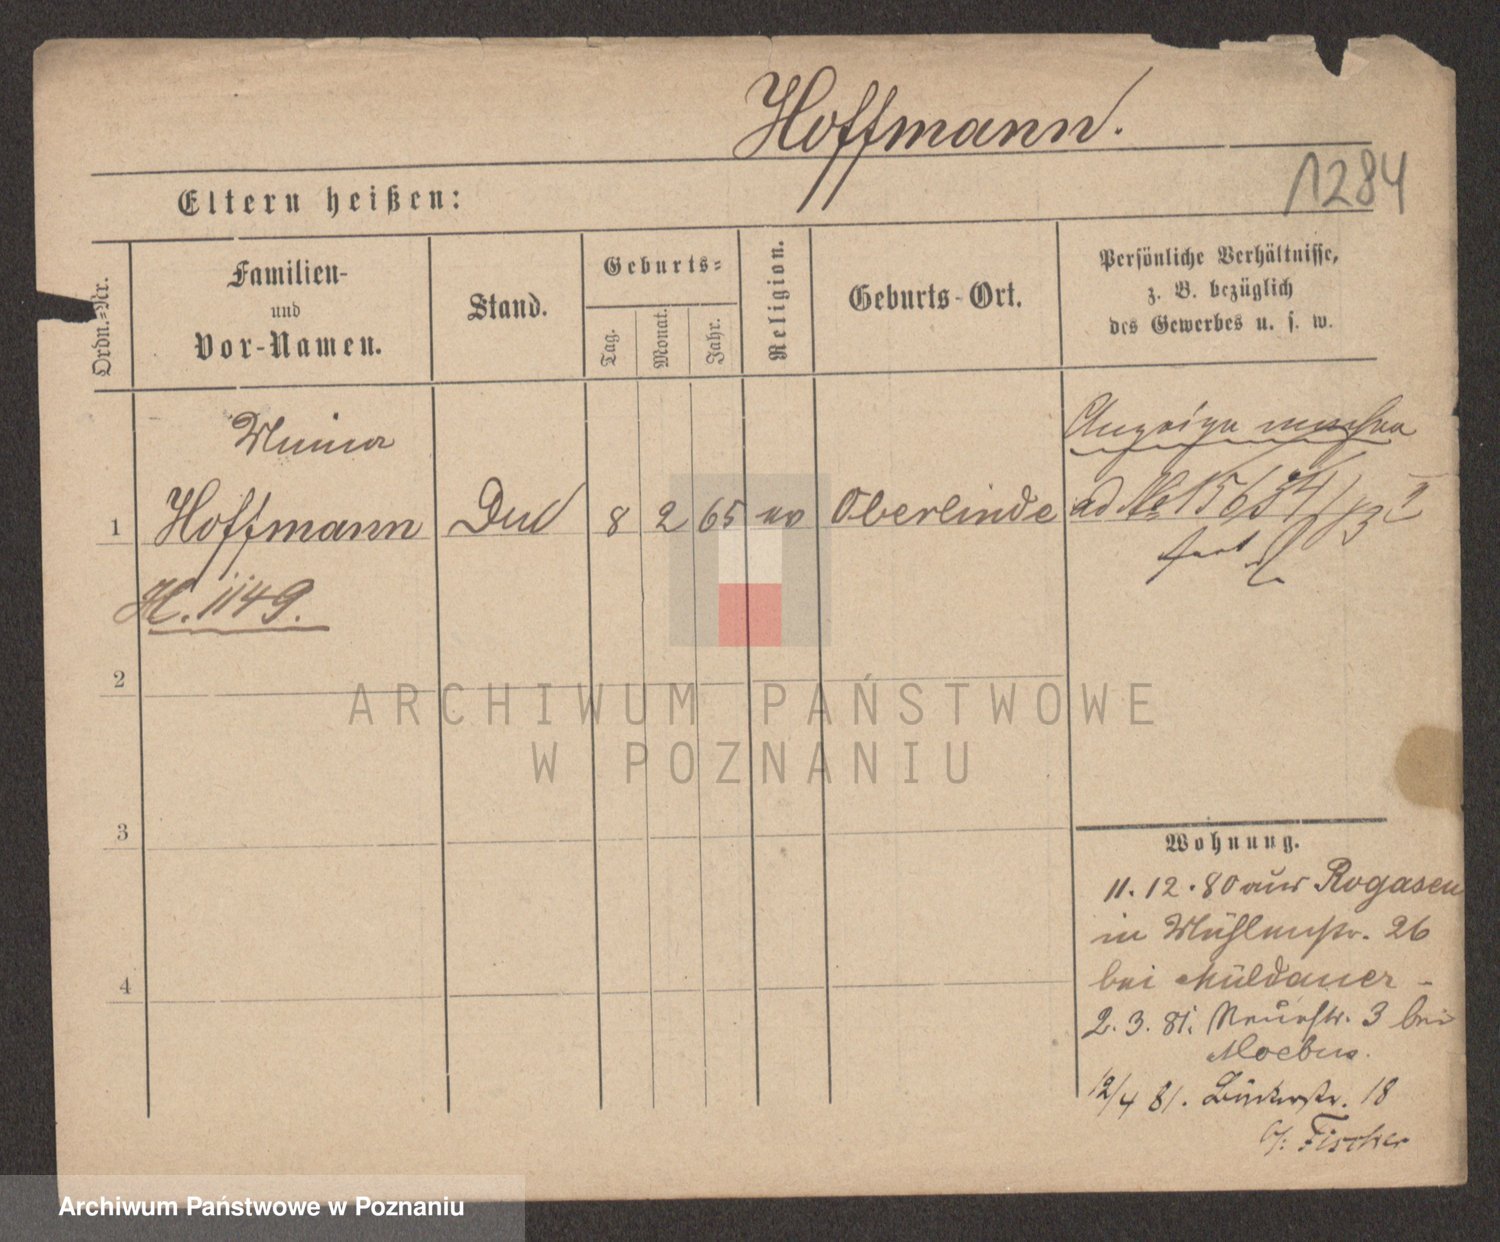 Hoffmann.
1284
Eltern heißen:
Ordn.-Nr.
Familien-
und
Vor-Namen.
Stand.
Geburts-
Tag.
Monat.
Jahr.
Religion.
Geburts-Ort.
Persönliche Verhältnisse,
z. B. bezüglich
des Gewerbes u. s. w.
1
Hoffmann
8
2
65
ev
Oberlinde
Anzeige machen
H. 1149.
2
3
4
Wohnung.
11. 12. 80 aus Rogasen
in Mühlenstr. 26
bei Müldauer -
2. 3. 81. Neuestr. 3 bei
Moebus.
12/4 81. 18
b/: Fischer
ARCHIWUM PAŃSTWOWE
W POZNANIU
Archiwum Państwowe w Poznaniu